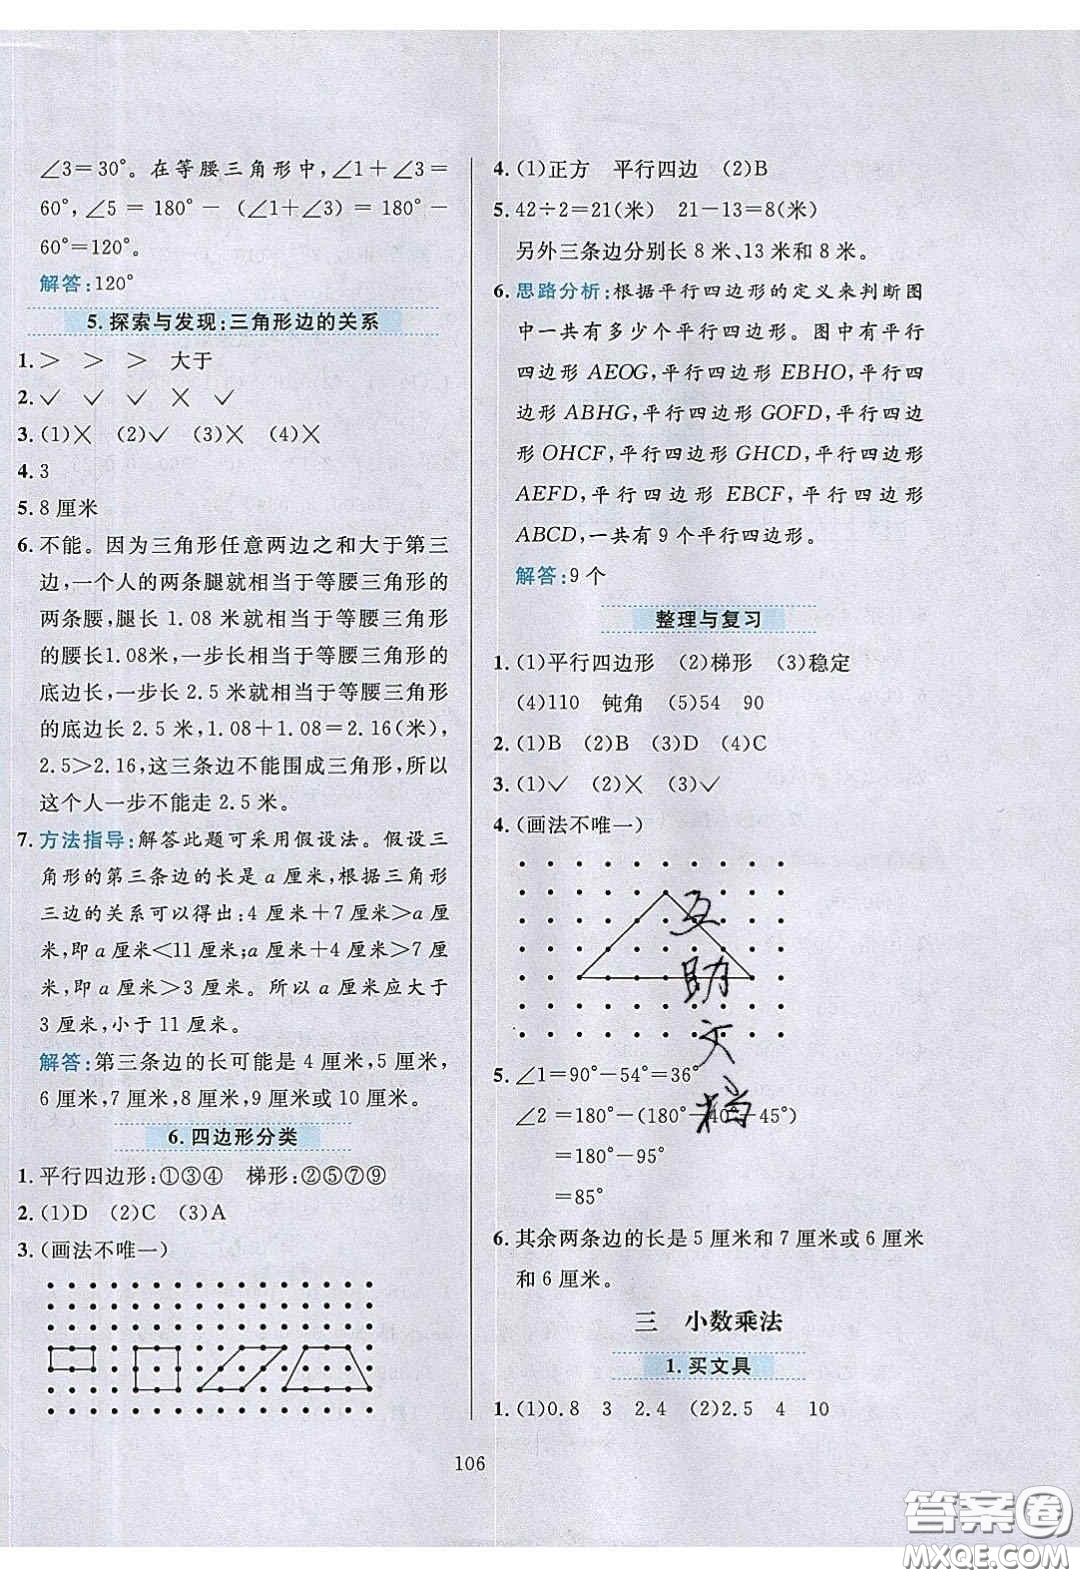 ∠3=30°。在等腰三角形中,∠1+∠3=
60°,∠5=180°-(∠1+∠3)=180°-
60°=120°。
解答:120°
5.探索与发现:三角形边的关系
1.> > > 大于
2.✓ ✓ ✓ ╳ ✓
3.(1)╳ (2)✓ (3)╳ (4)╳
4.3
5.8厘米
6.不能。因为三角形任意两边之和大于第三
边,一个人的两条腿就相当于等腰三角形的
两条腰,腿长1.08米就相当于等腰三角形
的腰长1.08米,一步长2.5米就相当于等腰三角形的
底边长,一步长2.5米就相当于等腰三角形
的底边长2.5米,1.08+1.08=2.16(米),
2.5>2.16,这三条边不能围成三角形,所以
这个人一步不能走2.5米。
7.方法指导:解答此题可采用假设法。假设三
角形的第三条边的长是a厘米,根据三角形
三边的关系可以得出:4厘米+7厘米>a厘
米,即a厘米<11厘米;a厘米+4厘米>7厘
米,即a厘米>3厘米。所以a厘米应大于
3厘米,小于11厘米。
解答:第三条边的长可能是4厘米,5厘米,
6厘米,7厘米,8厘米,9厘米或10厘米。
6.四边形分类
1.平行四边形:①③④ 梯形:②⑤⑦⑨
2.(1)D (2)C (3)A
3.(画法不唯一)
4.(1)正方 平行四边 (2)B
5.42÷2=21(米) 21-13=8(米)
另外三条边分别长8米、13米和8米。
6.思路分析:根据平行四边形的定义来判断图
中一共有多少个平行四边形。图中有平行
四边形AEOG,平行四边形EBHO,平行四
边形ABHG,平行四边形GOFD,平行四边
形OHCF,平行四边形GHCD,平行四边形
AEFD,平行四边形EBCF,平行四边形
ABCD,一共有9个平行四边形。
解答:9个
整理与复习
1.(1)平行四边形 (2)梯形 (3)稳定
(4)110 钝角 (5)54 90
2.(1)B (2)B (3)D (4)C
3.(1)✓ (2)╳ (3)✓
4.(画法不唯一)
互
助
文
档
5.∠1=90°-54°=36°
∠2=180°-(180°-40°-45°)
=180°-95°
=85°
6.其余两条边的长是5厘米和7厘米或6厘米
和6厘米。
三 小数乘法
1.买文具
1.(1)0.8 3 2.4 (2)2.5 4 10
106
答案圈
MXQE.COM